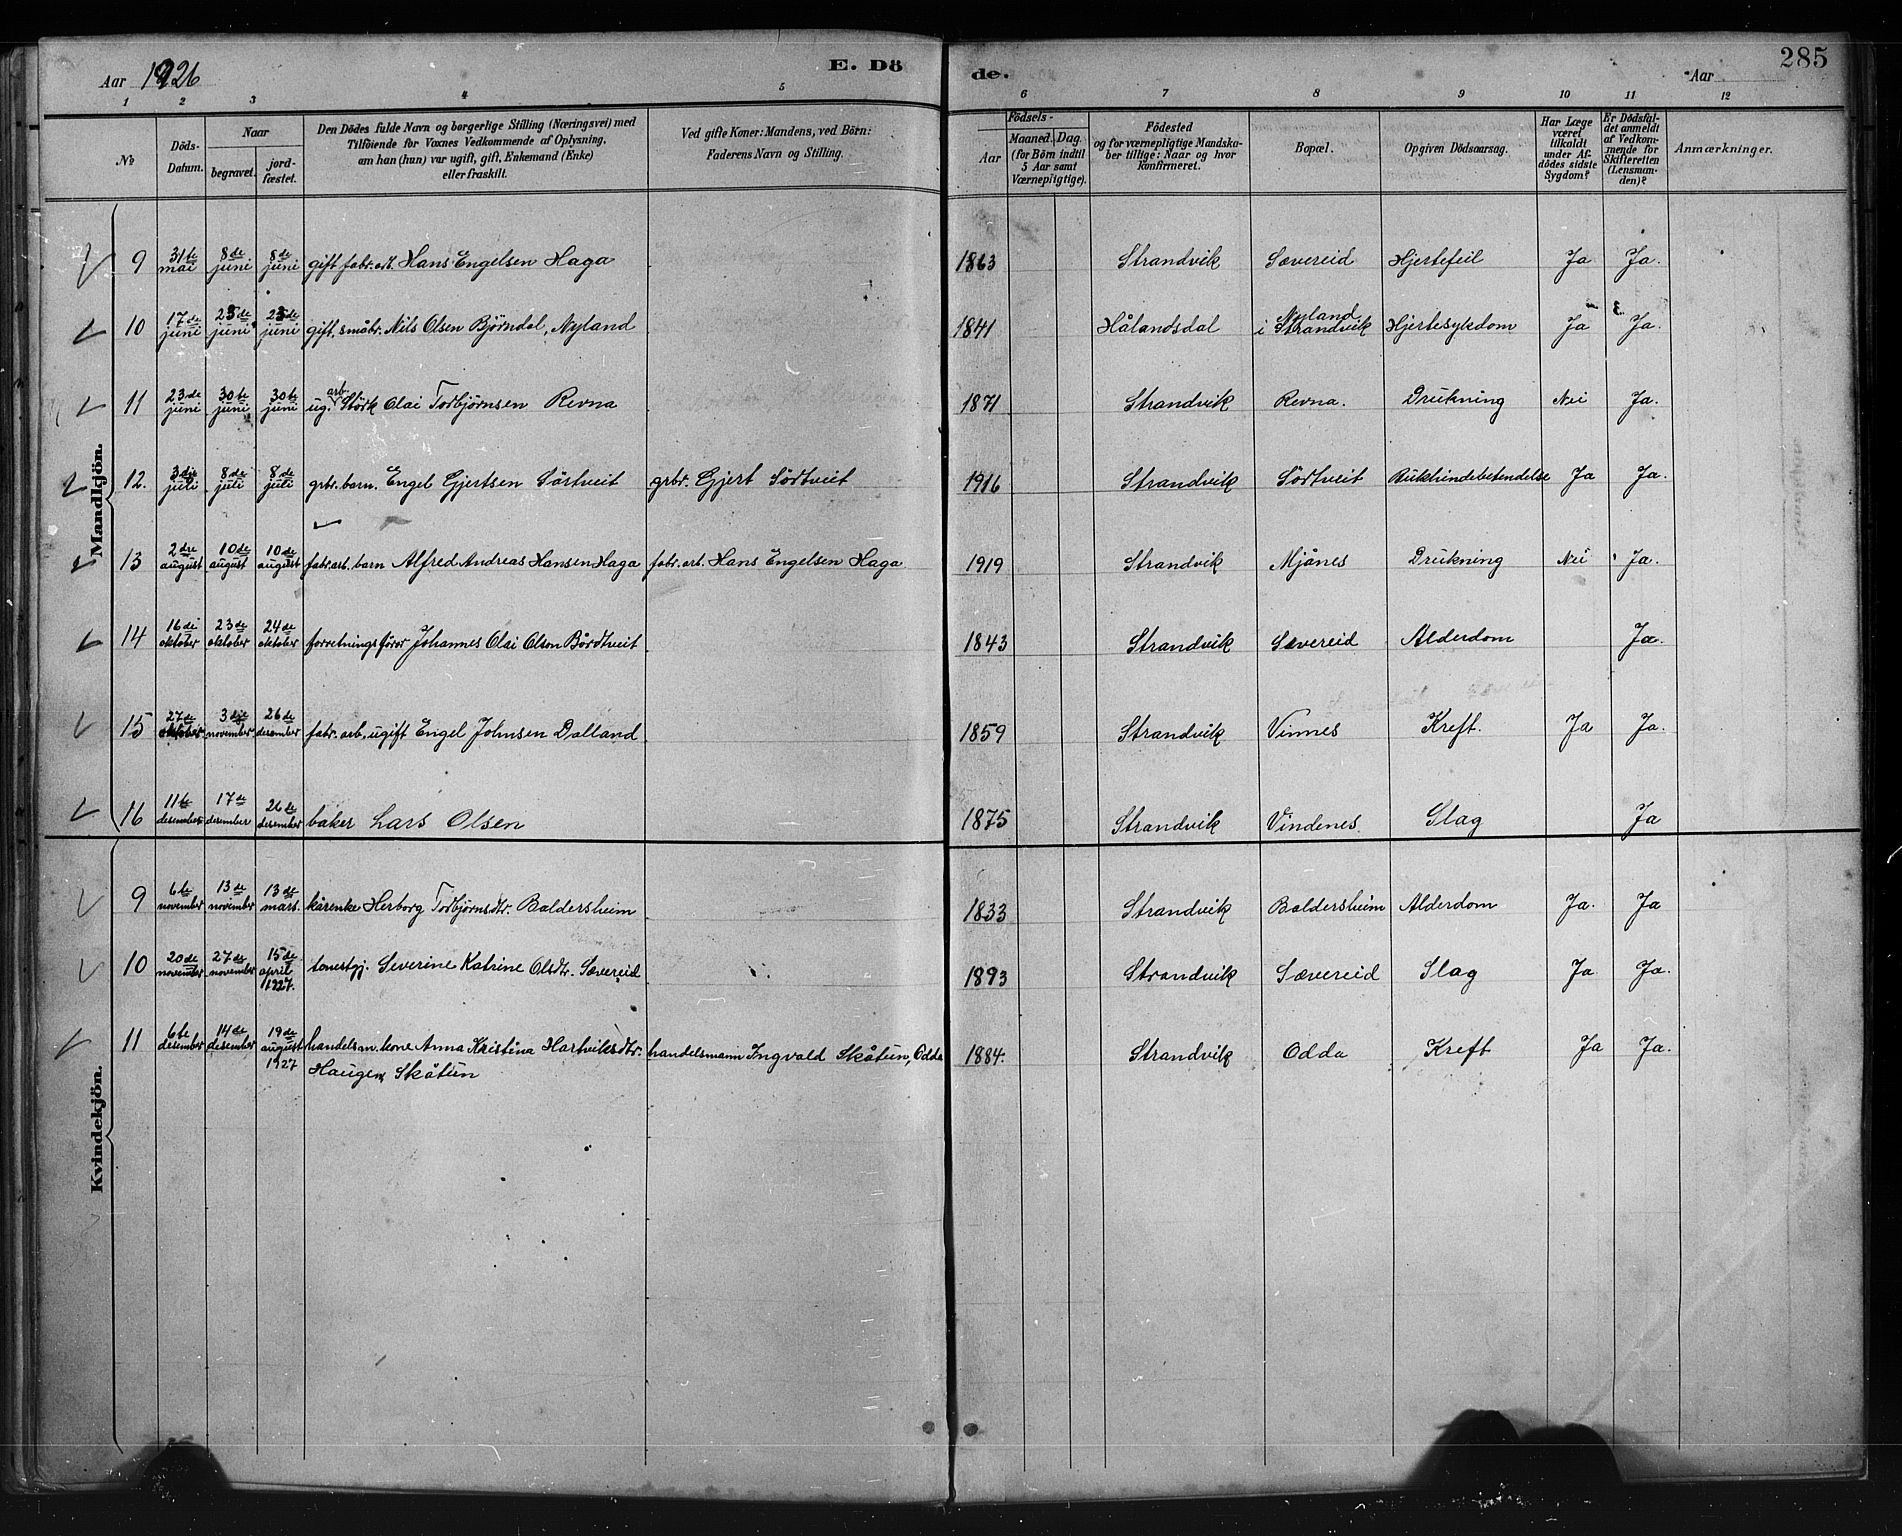 285
Aar 1926
E. Dö
de.
Aar
1 2 3 4 5 6 7 8 9 10 11 12
No
Döds-Datum.
Naar
begravet.
jord-fæstet.
Den Dödes fulde Navn og borgerlige Stilling (Næringsvei) med
Tilföiende for Voxnes Vedkommende af Oplysning,
om han (hun) var ugift, gift, Enkemand (Enke)
eller fraskilt.
Ved gifte Koner: Mandens, ved Börn:
Faderens Navn og Stilling.
Födsels-
Aar
Maaned. Dag.
(for Börn indtil
5 Aar samt
Værnepligtige).
Födested
og for værnepligtige Mandska-
ber tillige: Naar og hvor
konfirmeret.
Bopæl.
Opgiven Dödsaarsag.
Har Læge
været
tilkaldt
under Af-
dödes sidste
Sygdom?
Er Dödsfal-
det anmeldt
af Vedkom-
mende for
Skifteretten
(Lensman-
den)?
Anmærkninger.
Mandkjön.
9 31te mai 8de juni 8de juni gift fabr. arb. Hans Engelsen Haga 1863 Strandvik Sævereid Hjertefeil Ja Ja.
10 17de juni 23de juni 23de juni gift, småbr. Nils Olsen Björndal, Nyland 1841 Hålandsdal Nyland i Strandvik Hjertesykdom Ja Ja.
11 23de juni 30te juni 30te juni ug. arb. Störk Olai Torbjörnsen Revna 1871 Strandvik Revna. Drukning Nei Ja.
12. 3dje juli 8de juli 8de juli grbr. barn. Engel Gjertsen Sörtveit grbr. Gjert Sörtveit 1916 Strandvik Sörtveit Bukhindebetendelse Ja Ja.
13 2dre august 10de august 10de august fabr. arb. barn Alfred Andreas Hansen Haga fabr. arb. Hans Engelsen Haga 1919 Strandvik Mjånes Drukning Nei Ja.
14 16de oktober 23de oktober 24de oktober forretningsförer Johannes Olai Olson Bördtveit 1843 Strandvik Sævereid Alderdom Ja.
15 27de oktober 3dje november 26de desember fabr. arb. ugift Engel Johnsen Dalland 1859 Strandvik Vinnes Kreft. Ja Ja.
16 11te desember 17de desember 26de desember baker Lars Olsen 1875 Strandvik Vindenes. Slag Ja
Kvindekjön.
9 6te november 13de november 13de mars. kårenke Herborg Torbjörnsdtr. Baldersheim 1833 Strandvik Baldersheim Alderdom Ja. Ja
10 20de november 27de november 15de april 1927. tenestgj. Severine Katrine Olsdtr. Sævereid 1893 Strandvik Sævereid Slag Ja Ja.
11 6te desember 14de desember 19de august 1927 handelsm. kone Anna Kristina Hartviksdtr. handelsmann Ingvald Skåtun, Odda 1884. Strandvik Odda Kreft Ja Ja.
Haugen, Skåtun